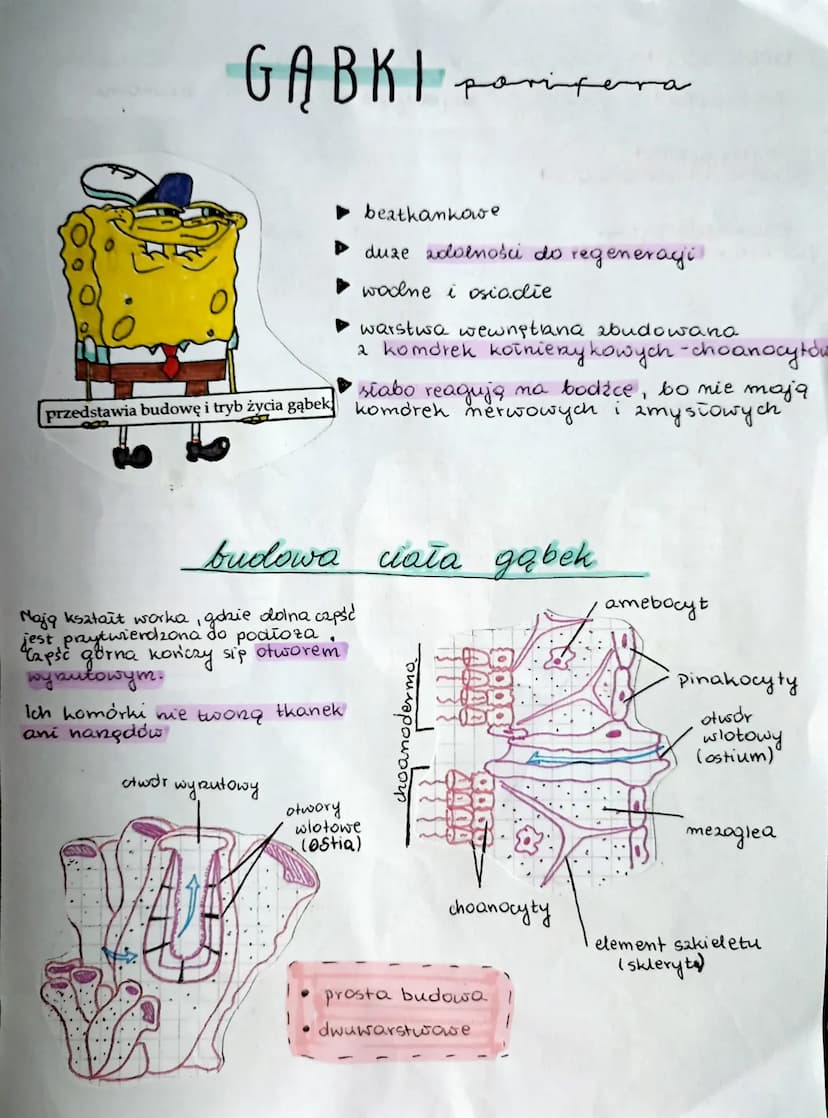 GĄBKI porifera
beztkankowe
duże zdolności do regeneracji
wodne i osiadłe
warstwa wewnętrzna zbudowana
z komórek kołnierzykowych - choanocytów
słabo reagują na bodźce, bo nie mają
komórek nerwowych i zmysłowych
przedstawia budowę i tryb życia gąbek
budowa ciała gąbek
Mają kształt worka, gdzie dolna część
jest przytwierdzona do podłoża.
Część górna kończy się otworem
wyrzutowym.
Ich komórki nie tworzą tkanek
ani narządów
otwór wyrzutowy
otwory
wlotowe
(ostia)
choanoderma
amebocyt
pinakocyty
otwór
wlotowy
(ostium)
mezoglea
choanocyty
element szkieletu
(skleryt)
• prosta budowa
• dwuwarstwowe